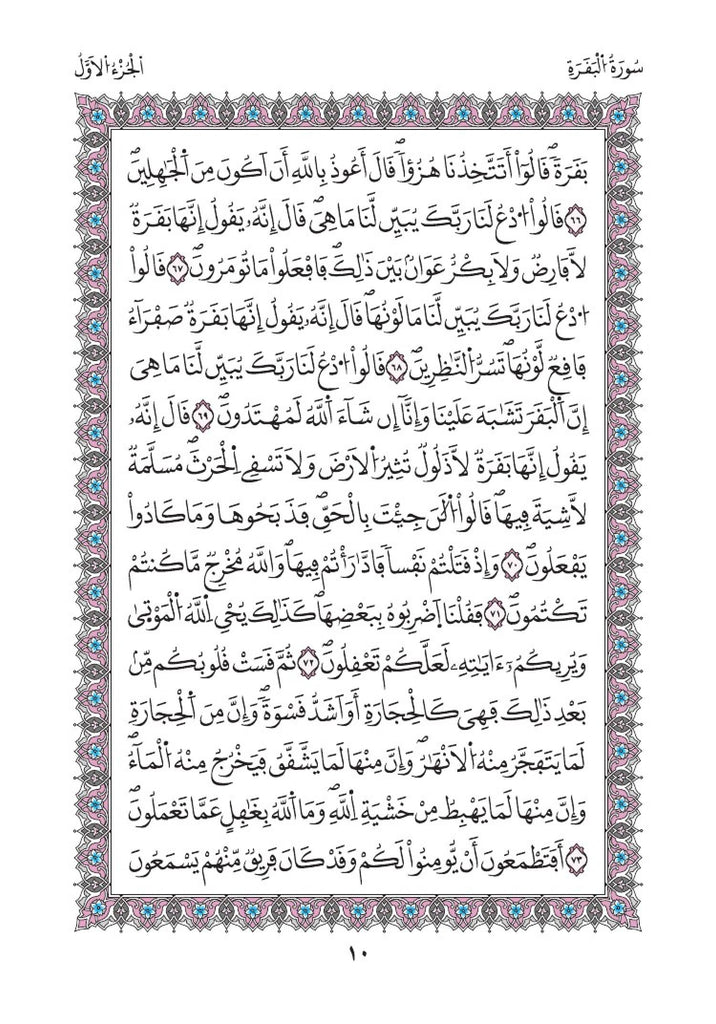 سُورَةُ الْبَقَرَةِ
الْجُزْءُ الْأَوَّلُ
بَفَرَةٗۖ فَالُوٓاْ أَتَتَّخِذُنَا هُزُؤاٗۖ فَالَ أَعُوذُ بِاللَّهِ أَنَ اَكُونَ مِنَ اَ۬لْجَٰهِلِينَۖ
﴿٦٦﴾ فَالُواْ اُ۟دْعُ لَنَا رَبَّكَ يُبَيِّن لَّنَا مَا هِيَۖ فَالَ إِنَّهُۥ يَفُولُ إِنَّهَا بَفَرَةٞ
لَّا بَارِضٞ وَلَا بِكْرٌ عَوَانُۢ بَيْنَ ذَٰلِكَۖ بَافْعَلُواْ مَا تُومَرُونَۖ ﴿٦٧﴾ فَالُواْ
اُ۟دْعُ لَنَا رَبَّكَ يُبَيِّن لَّنَا مَا لَوْنُهَاۖ فَالَ إِنَّهُۥ يَفُولُ إِنَّهَا بَفَرَةٞ صَفْرَآءُ
بَافِعٞ لَّوْنُهَا تَسُرُّ اُ۬لنَّٰظِرِينَۖ ﴿٦٨﴾ فَالُواْ اُ۟دْعُ لَنَا رَبَّكَ يُبَيِّن لَّنَا مَا هِيَ
إِنَّ اَ۬لْبَفَرَ تَشَٰبَهَ عَلَيْنَا وَإِنَّآ إِن شَآءَ اَ۬للَّهُ لَمُهْتَدُونَۖ ﴿٦٩﴾ فَالَ إِنَّهُۥ
يَفُولُ إِنَّهَا بَفَرَةٞ لَّا ذَلُولٞ تُثِيرُ اُ۬لَارْضَ وَلَا تَسْفِے اِ۬لْحَرْثَۖ مُسَلَّمَةٞ
لَّا شِيَةَ فِيهَاۖ فَالُواْ اُ۬لَٰنَ جِئْتَ بِالْحَقِّۖ فَذَبَحُوهَا وَمَا كَادُواْ
يَفْعَلُونَۖ ﴿٧٠﴾ وَإِذْ فَتَلْتُمْ نَفْساٗ فَادَّٰرَٰٔتُمْ فِيهَاۖ وَاللَّهُ مُخْرِجٞ مَّا كُنتُمْ
تَكْتُمُونَۖ ﴿٧١﴾ فَفُلْنَا اَ۪ضْرِبُوهُ بِبَعْضِهَاۖ كَذَٰلِكَ يُحْيِ اِ۬للَّهُ اُ۬لْمَوْتۭيٰ
وَيُرِيكُمُۥٓ ءَايَٰتِهِۦ لَعَلَّكُمْ تَعْفِلُونَۖ ﴿٧٢﴾ ثُمَّ فَسَتْ فُلُوبُكُم مِّنۢ
بَعْدِ ذَٰلِكَ فَهِيَ كَالْحِجَارَةِ أَوَ اَشَدُّ فَسْوَةٗۖ وَإِنَّ مِنَ اَ۬لْحِجَارَةِ
لَمَا يَتَفَجَّرُ مِنْهُ اُ۬لَانْهَٰرُۖ وَإِنَّ مِنْهَا لَمَا يَشَّفَّقُ فَيَخْرُجُ مِنْهُ اُ۬لْمَآءُۖ
وَإِنَّ مِنْهَا لَمَا يَهْبِطُ مِنْ خَشْيَةِ اِ۬للَّهِۖ وَمَا اَ۬للَّهُ بِغَٰفِلٍ عَمَّا تَعْمَلُونَۖ
﴿٧٣﴾ أَفَتَطْمَعُونَ أَنْ يُّومِنُواْ لَكُمْ وَفَدْ كَانَ فَرِيقٞ مِّنْهُمْ يَسْمَعُونَ
١٠